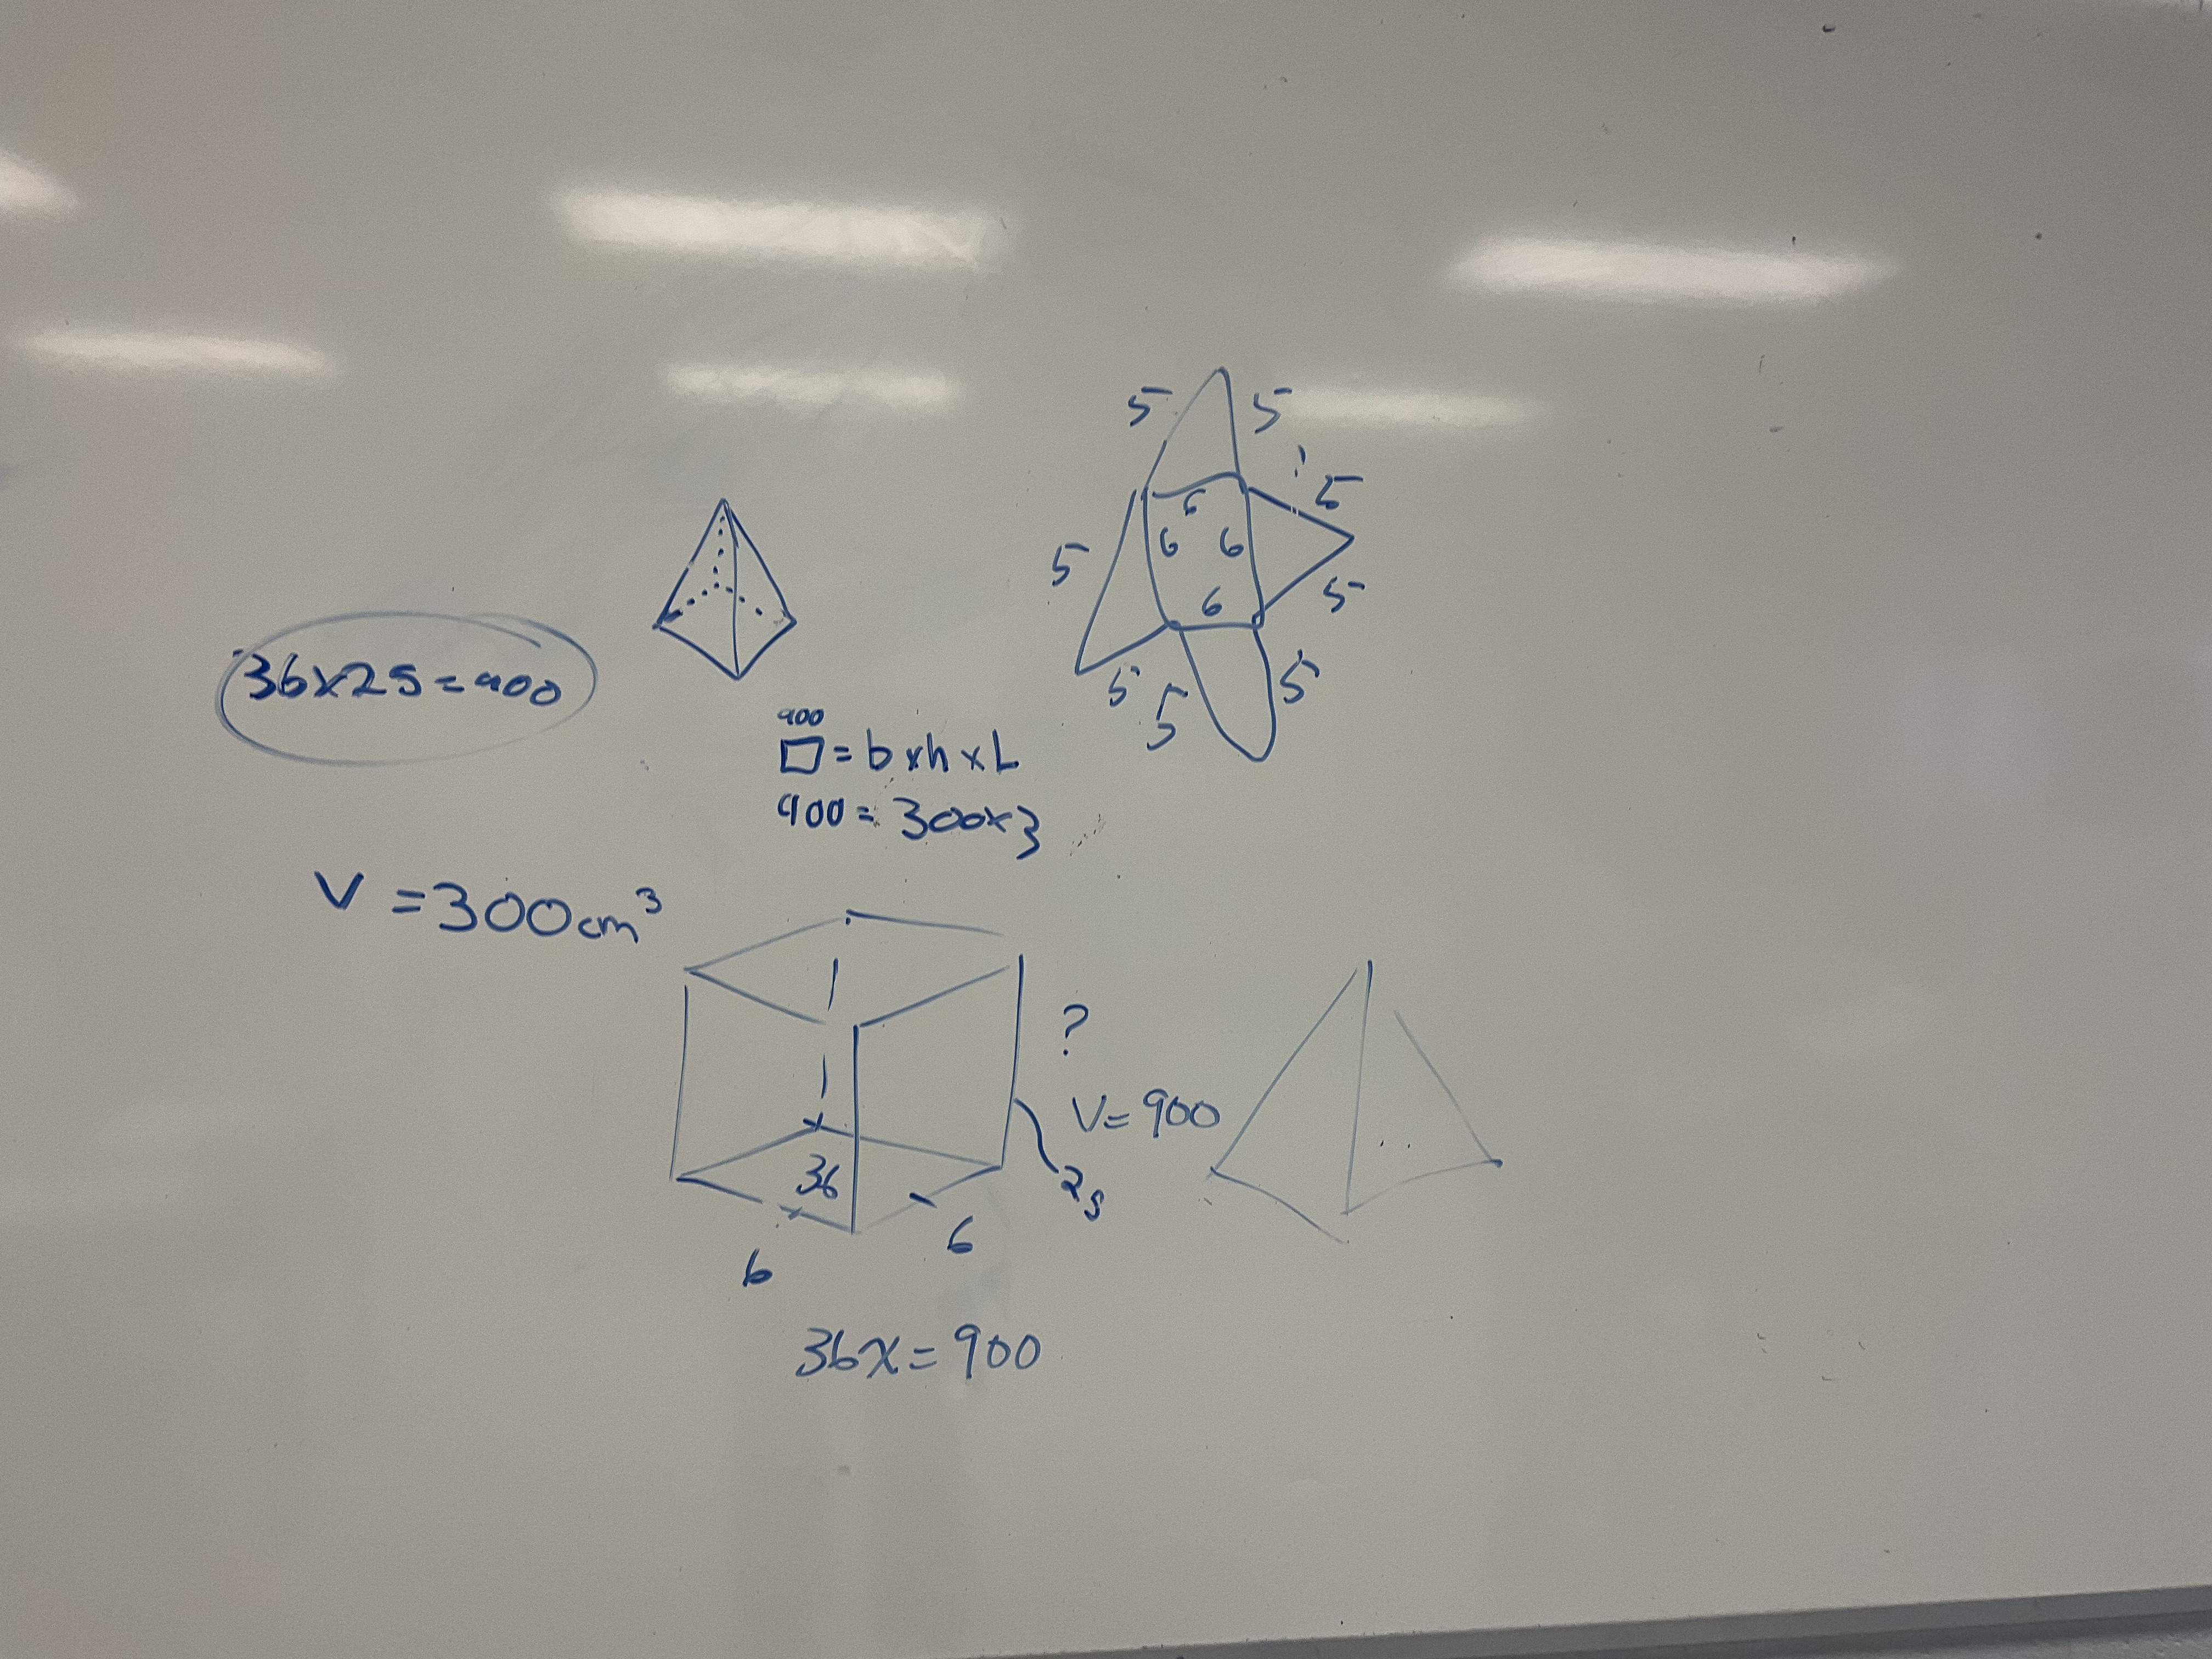 5 5
5
6
6 6
5
6
5
5 5
5
36x25=900
900
□=bxhxL
900=300x3
V=300cm³
?
V=900
36
25
6
6
36x=900